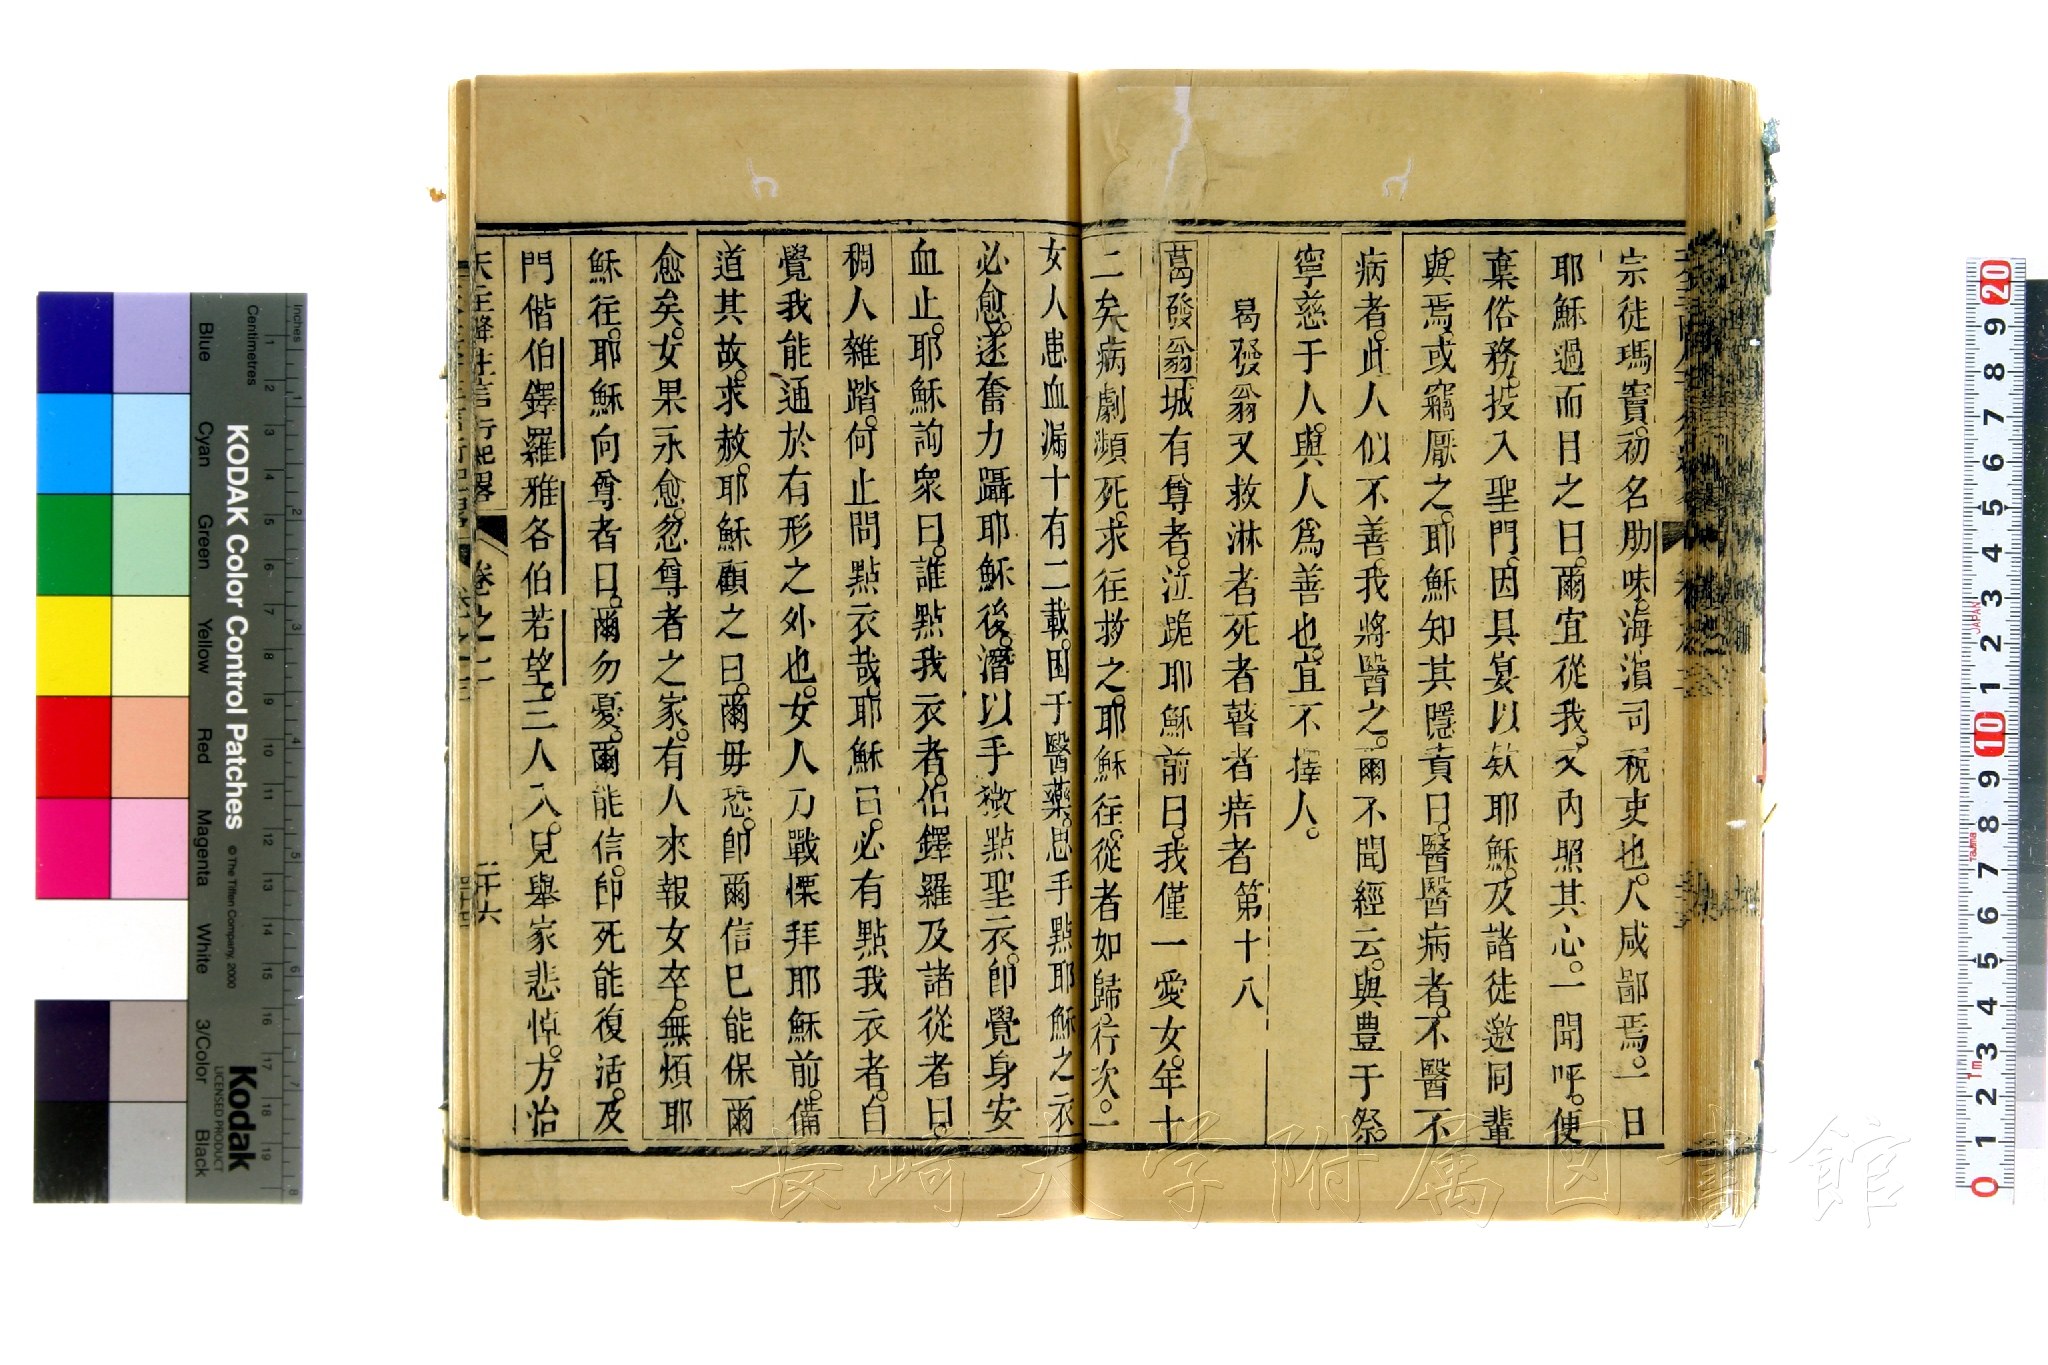 宗徒瑪竇。初名肋味。海濵司稅吏也。人咸鄙焉。一日
耶穌過而目之曰。爾宜從我。又內照其心。一聞呼。便
棄俗務。投入聖門。因具宴以欵耶穌。及諸徒邀同輩
與焉。或竊厭之。耶穌知其隱責曰。醫醫病者。不醫不
病者。此人似不善。我將醫之。爾不聞經云。與豊于祭。
寧慈于人。與人爲善也。宜不擇人。
葛發翁又救淋者死者瞽者瘖者第十八
葛發翁城有尊者。泣跪耶穌前曰。我僅一愛女。年十
二矣病劇瀕死。求往救之。耶穌往。從者如歸。行次。一
女人患血漏十有二載。困于醫藥。思手點耶穌之衣
必愈。遂奮力躡耶穌後。潛以手微點聖衣。卽覺身安
血止。耶穌詢衆曰。誰點我衣者。伯鐸羅及諸從者曰。
稠人雜踏。何止問點衣哉。耶穌曰。必有點我衣者。自
覺我能通於有形之外也。女人乃戰慄拜耶穌前。備
道其故。求赦。耶穌顧之曰。爾毋恐。卽爾信已能保爾
愈矣。女果永愈。忽尊者之家。有人來報女卒。無煩耶
穌往。耶穌向尊者曰。爾勿憂。爾能信。卽死能復活。及
門偕伯鐸羅雅各伯若望。三人入。見舉家悲悼。方治
天主降生言行紀畧 卷之二 二十六
長崎大学附属図書館
KODAK Color Control Patches
© The Tiffen Company, 2000
Kodak
LICENSED PRODUCT
Inches
Centimetres
Blue Cyan Green Yellow Red Magenta White 3/Color Black
JAPAN
Tajima